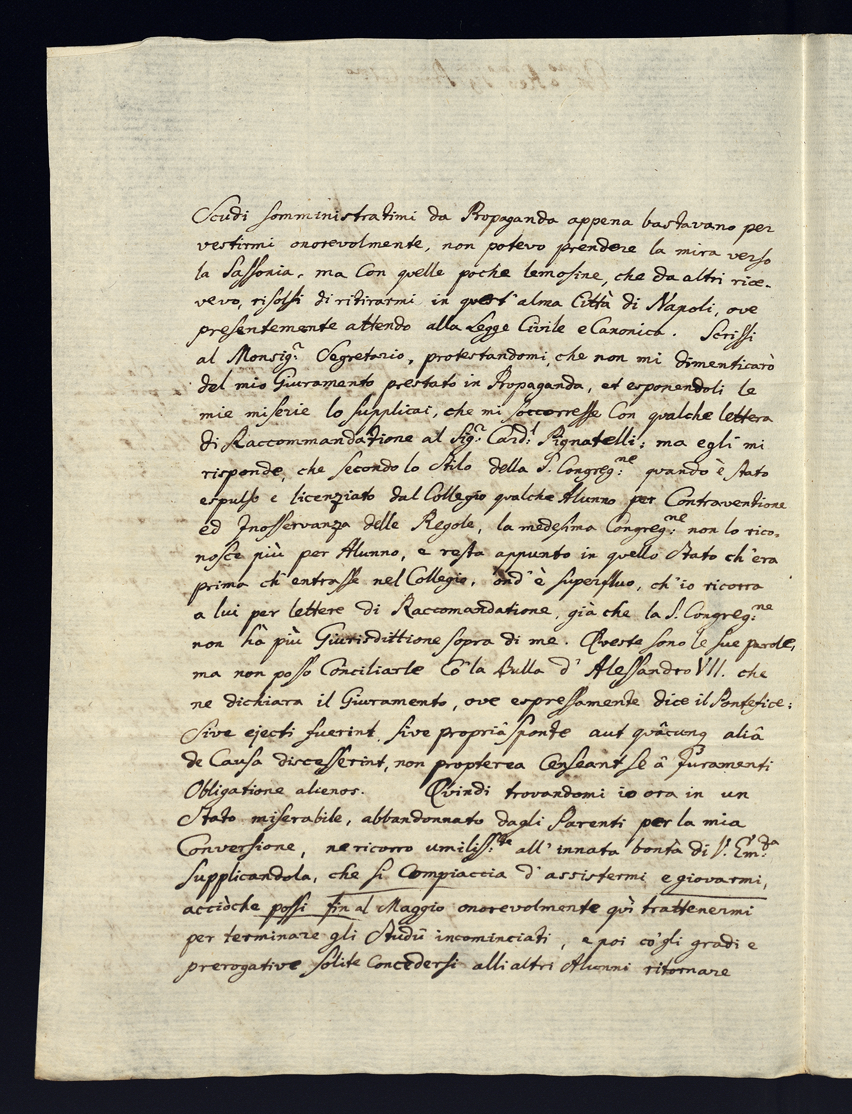 Scudi somministratimi da Propaganda appena bastavano per
vestirmi onorevolmente, non potevo prendere la mira verso
la Sassonia, ma con quelle poche lemosine, che da altri rice-
vevo, risolsi di ritirarmi in quest' alma Città di Napoli, ove
presentemente attendo alla Legge Civile e Canonica. Scrissi
al Monsig.r Segretario, protestandomi, che non mi dimenticarò
del mio Giuramento prestato in Propaganda, et esponendoli le
mie miserie lo supplicai, che mi soccorresse con qualche lettera
di Raccommandatione al Sig.r Card.l Pignatelli; ma egli mi
risponde, che secondo lo Stilo della S. Congreg:ne quando è stato
espulso e licenziato dal Collegio qualche Alunno per Contraventione
ed Inosservanza delle Regole, la medesima Congreg:ne non lo rico-
nosce più per Alunno, e resta appunto in quello Stato ch'era
prima ch'entrasse nel Collegio, ond'è superfluo, ch'io ricorra
a lui per lettere di Raccomandatione, già che la S. Congreg:ne
non hà più Giurisdittione sopra di me. Queste sono le sue parole,
ma non posso Conciliarle cō la Bulla d' Alessandro VII. che
ne dichiara il Giuramento, ove espressamente dice il Pontefice:
Sive ejecti fuerint, sive propriâ sponte aut quâcunq aliâ
de Causa discesserint, non propterea Censeant se â Juramenti
Obligatione alienos. Quindi trovandomi io ora in un
Stato miserabile, abbandonnato dagli Parenti per la mia
Conversione, ne ricorro umiliss:te all' innata bontà di V. Em:da
supplicandola, che si Compiaccia d'assistermi e giovarmi,
acciòche possi fin al Maggio onorevolmente quì trattenermi
per terminare gli Studii incominciati, e poi co'gli gradi e
prerogative solite Concedersi alli altri Alunni ritornare